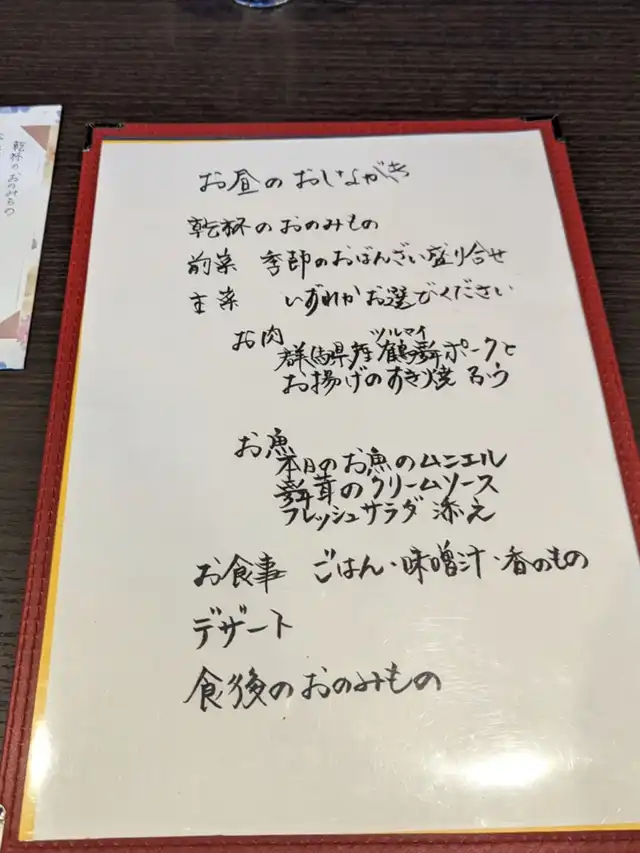 お昼のおしながき
乾杯のおのみもの
前菜 季節のおばんざい盛り合せ
主菜 いずれかお選びください
お肉
ツルマイ
群馬県産 鶴舞ポークと
お揚げのすき焼
お魚
本日のお魚のムニエル
舞茸のクリームソース
フレッシュサラダ 添え
お食事 ごはん・味噌汁・香のもの
デザート
食後のおのみもの
乾杯のおのみもの